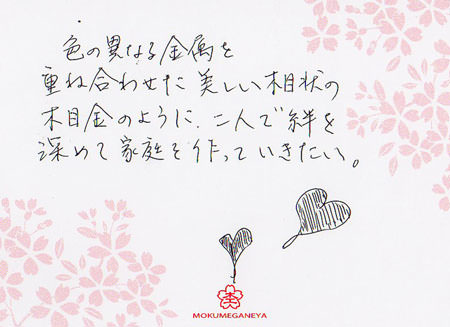 色の異なる金属を
重ね合わせた美しい木目状の
木目金のように、二人で絆を
深めて家庭を作っていきたい。
MOKUMEGANEYA